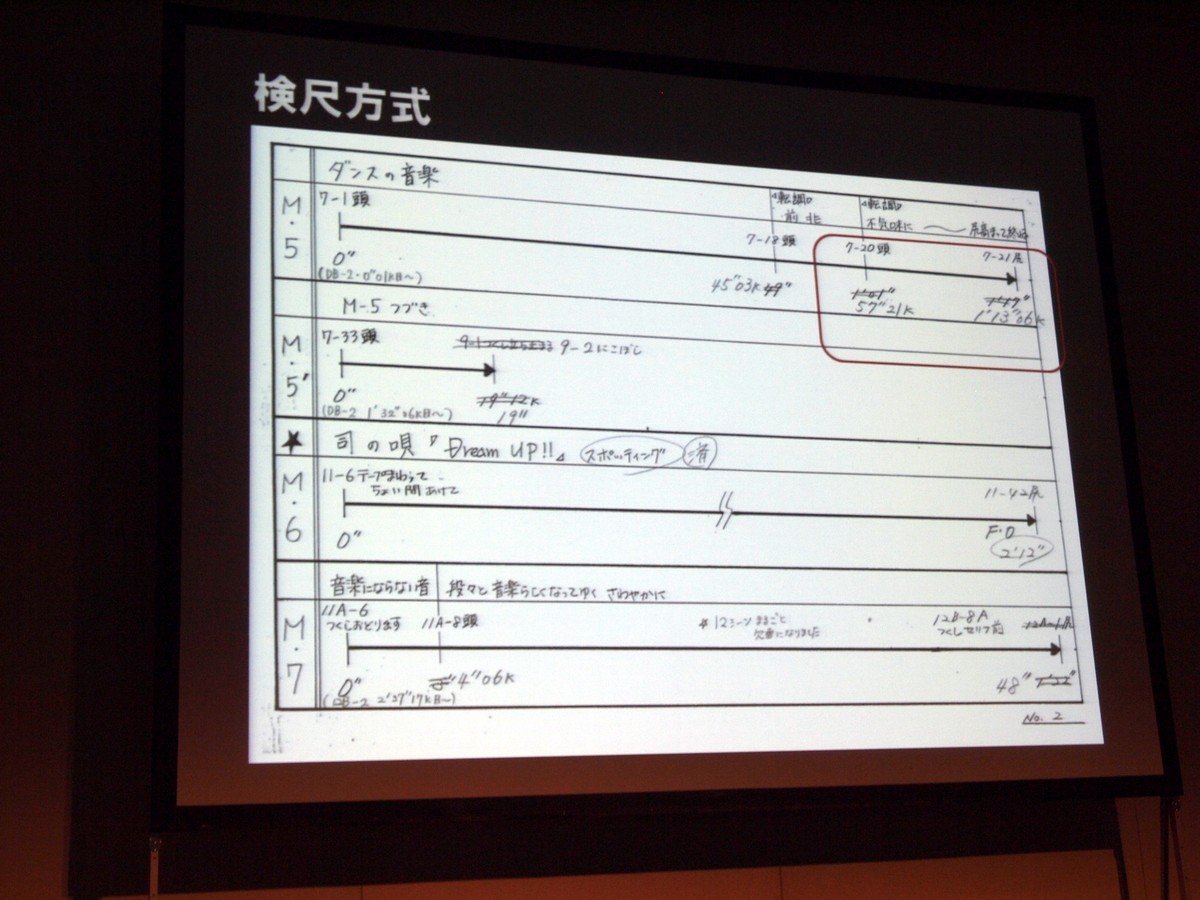 検尺方式
ダンスの音楽
M・5
7-1頭
0"
(DB-2-0"01K目〜)
転調
前 北
7-18頭
45"03K 49"
転調
不気味に 〜
7-20頭
1'01"
57"21K
7-21尻
1'19"
1'13"06K
M-5 つづき
M・5'
7-33頭
0"
(DB-2 1'32"06K目〜)
9-2にこぼし
19"12K
19"
★ 司の唄『Dream UP!!』 スポッティング 済
M・6
11-6テープまわって
ちょい間あけて
0"
11-42尻
F・O
2'12"
音楽にならない音 段々と音楽らしくなってゆく さわやかに
M・7
11A-6
つくしおどります
11A-8頭
0"
(DB-2 2'37"17K目〜)
4"06K
* 12シーンまるごと
欠番になりました
12B-8A
つくしセリフ前
48"
No. 2